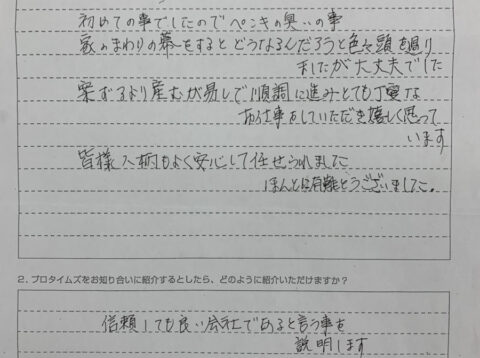 初めての事でしたのでペンキの臭いの事
家のまわりの幕をするとどうなるんだろうと色々頭を過り
ましたが大丈夫でした
案ずるより産むが易しで順調に進みとても丁寧な
お仕事をしていただき嬉しく思って
います
皆様人柄もよく安心して任せられました
ほんとに有難とうございました。
2. プロタイムズをお知り合いに紹介するとしたら、どのように紹介いただけますか？
信頼しても良い会社であると言う事を
説明します